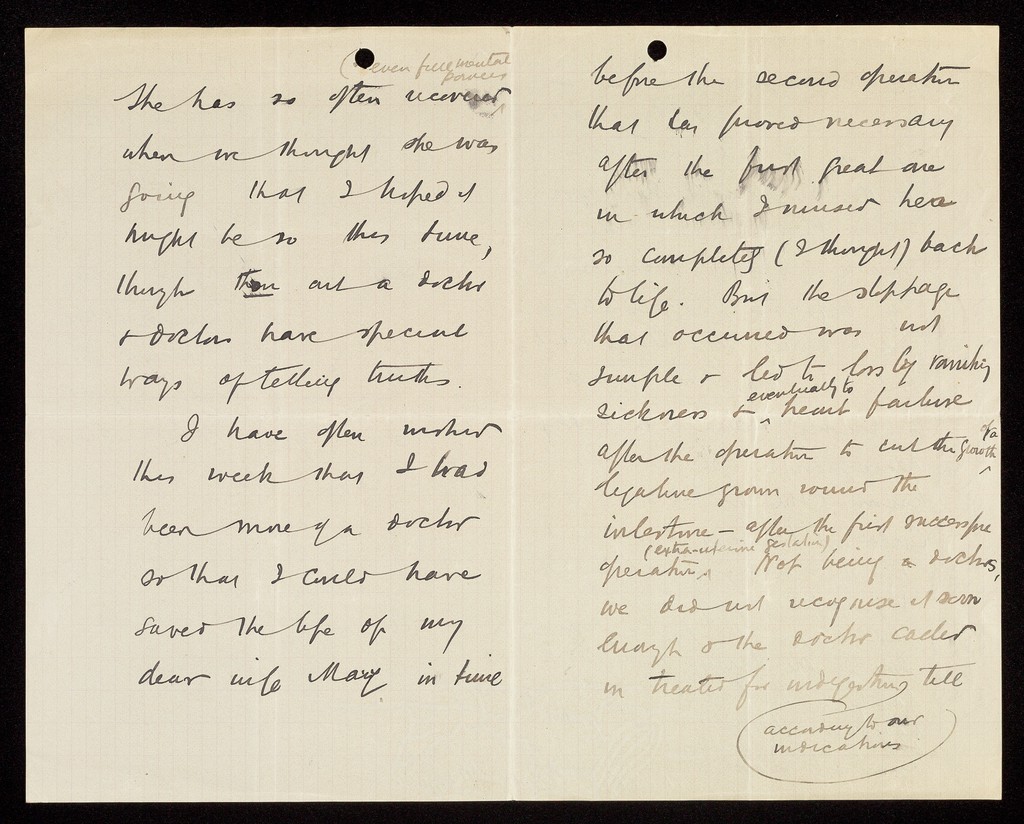 (even full mental
powers
She has so often recovered
when we thought she was
going that I hoped it
might be so this time,
though thou art a doctor
& doctors have special
ways of telling truths.
I have often wished
this week that I had
been more of a doctor
so that I could have
saved the life of my
dear wife Mary in time
before the second operation
that has proved necessary
after the first great one
in which I nursed her
so completely (I thought) back
to life. But the stoppage
that occurred was not
simple & led to loss by vomiting
eventually to
sickness & heart failure
of a
after the operation to cut the growth
ligature grown round the
intestine – after the first successful
(extra-uterine gestation)
operation. Not being a doctor,
we did not recognise it soon
enough & the doctor called
in treated for indigestion, till
according to our
indications